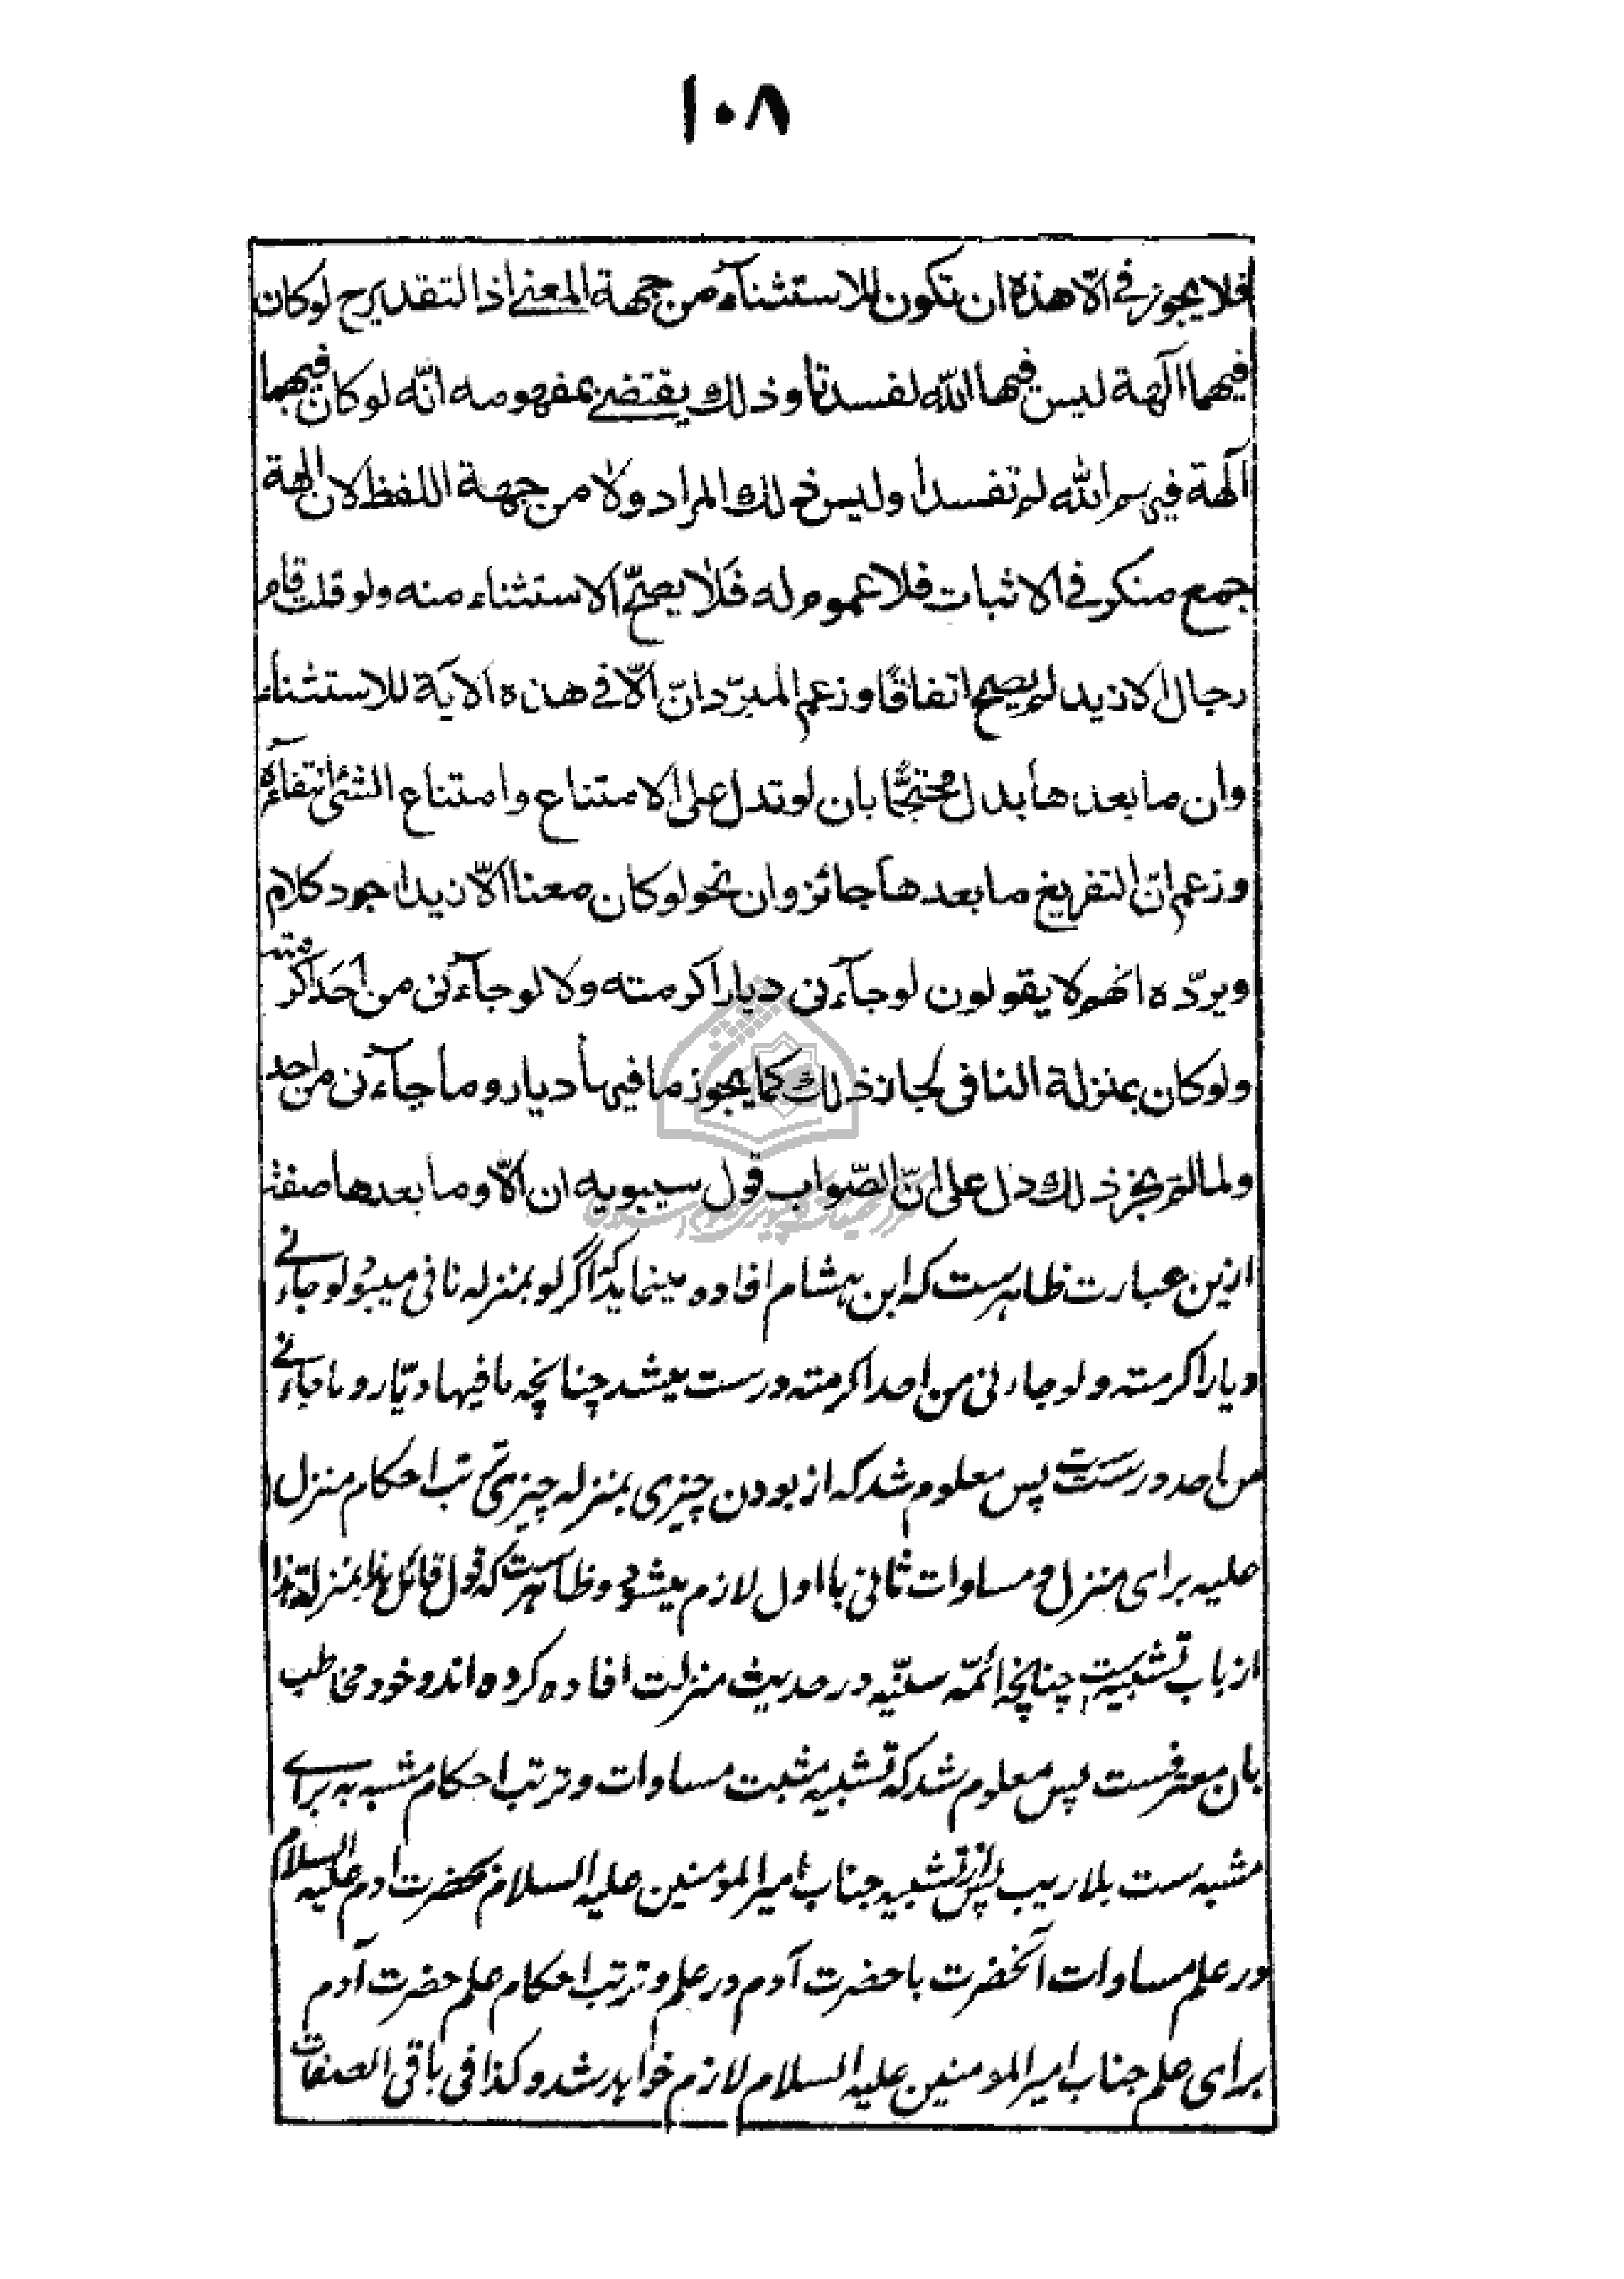 ١٠٨
فلا يجوز في الّا هذه ان تكون للاستثنآء من جهة المعنى اذ التقدير ح لو كان
فيهما آلهة ليس فيها اللّه لفسدتا وذلك يقتضى بمفهومه انّه لو كان فيهما
آلهة فيهم الله لم تفسدا وليس ذلك المراد ولا من جهة اللفظ لان الهة
جمع منكر في الاثبات فلا عموم له فَلا يصحّ الاستثناء منه ولو قلت قام
رجال الا زيد لم يصح اتفاقًا وزعم المبرّد انّ الّا في هذه الاية للاستثناء
وان ما بعدها بدل محتجًّا بان لو تدل على الامتناع وامتناع الشئ انتفآءه
وزعم انّ التفريغ ما بعدها جائز وان نحو لو كان معنا الّا زيد اجود كلام
ويردّه انهم لا يقولون لو جآءنى ديار اكرمته ولا لو جآءنى من اَحَد اكرمته
ولو كان بمنزلة النافى لجاز ذلك كما يجوز ما فيها ديار وما جآءنى من احد
ولما لم يجز ذلك دل على انّ الصّواب قول سيبويه ان الّا وما بعدها صفة
ازين عبارت ظاهرست كه ابن هشام افاده مينمايد كه اگر لو بمنزله نافى ميبود لو جاءنے
ديار اكرمته و لو جاءنى من احد اكرمته درست ميشد چنانچه ما فيها ديّار و ما جاءنے
من احد درست ست پس معلوم شد كه از بودن چيزى بمنزله چيزى ترتب احكام منزل
عليه براى منزل و مساوات ثانى با اول لازم ميشود و ظاهرست كه قول قائل هذا بمنزلة هذا
از باب تشبيه ست چنانچه ائمّه سنّيّه در حديث منزلت افاده كرده اند و خود مخاطب
بان معترفست پس معلوم شد كه تشبيه مثبت مساوات و ترتب احكام مشبه به براے
مشبه ست بلا ريب پس از تشبيه جناب امير المومنين عليه السلام بحضرت ادم عليه السلام
در علم مساوات آنحضرت با حضرت آدم در علم و ترتب احكام علم حضرت آدم
براى علم جناب امير المومنين عليه السلام لازم خواهد شد و كذا فى باقى الصفات